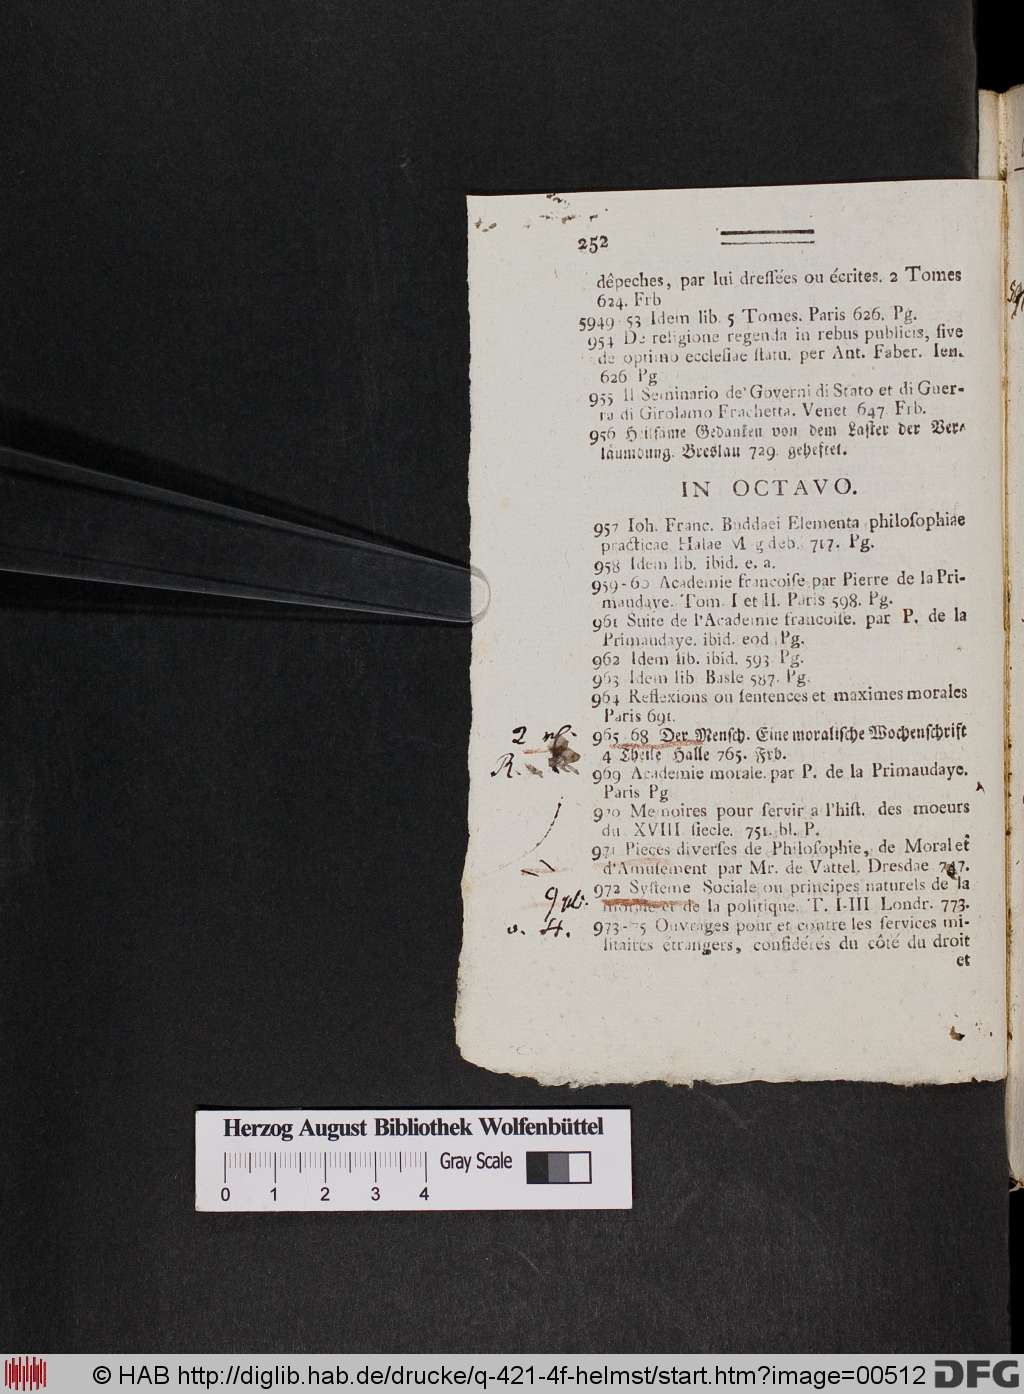 252
dêpeches, par lui dreſſées ou écrites. 2 Tomes
624. Frb
5949-53 Idem lib. 5 Tomes. Paris 626. Pg.
954 De religione regenda in rebus publicis, ſive
de optimo eccleſiae ſtatu. per Ant. Faber. Ien.
626 Pg
955 Il Seminario de' Governi di Stato et di Guer-
ra di Girolamo Frachetta. Venet 647 Frb.
956 Heilſame Gedanken von dem Laſter der Ver-
läumdung. Breslau 729. geheftet.
IN OCTAVO.
957 Ioh. Franc. Buddaei Elementa philoſophiae
practicae Halae Magdeb. 717. Pg.
958 Idem lib. ibid. e. a.
959-60 Academie francoiſe par Pierre de la Pri-
maudaye. Tom. I et II. Paris 598. Pg.
961 Suite de l'Academie francoiſe. par P. de la
Primaudaye. ibid. eod. Pg.
962 Idem lib. ibid. 593 Pg.
963 Idem lib Basle 587. Pg.
964 Reflexions ou ſentences et maximes morales
Paris 691.
965-68 Der Menſch. Eine moraliſche Wochenſchrift
4 Theile Halle 765. Frb.
969 Academie morale. par P. de la Primaudaye.
Paris Pg
970 Memoires pour ſervir a l'hiſt. des moeurs
du XVIII ſiecle. 751. bl. P.
971 Pieces diverſes de Philoſophie, de Moral et
d'Amuſement par Mr. de Vattel. Dresdae 747.
972 Syſteme Sociale ou principes naturels de la
morale et de la politique. T. I-III Londr. 773.
973-75 Ouvrages pour et contre les ſervices mi-
litaires étrangers, conſidérés du côté du droit
et
2
R.
9
Herzog August Bibliothek Wolfenbüttel
Gray Scale
0 1 2 3 4
© HAB http://diglib.hab.de/drucke/q-421-4f-helmst/start.htm?image=00512
DFG